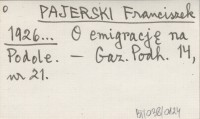 PAJERSKI Franciszek
1926... O emigrację na
Podole. — Gaz. Podh. 14,
nr 21.